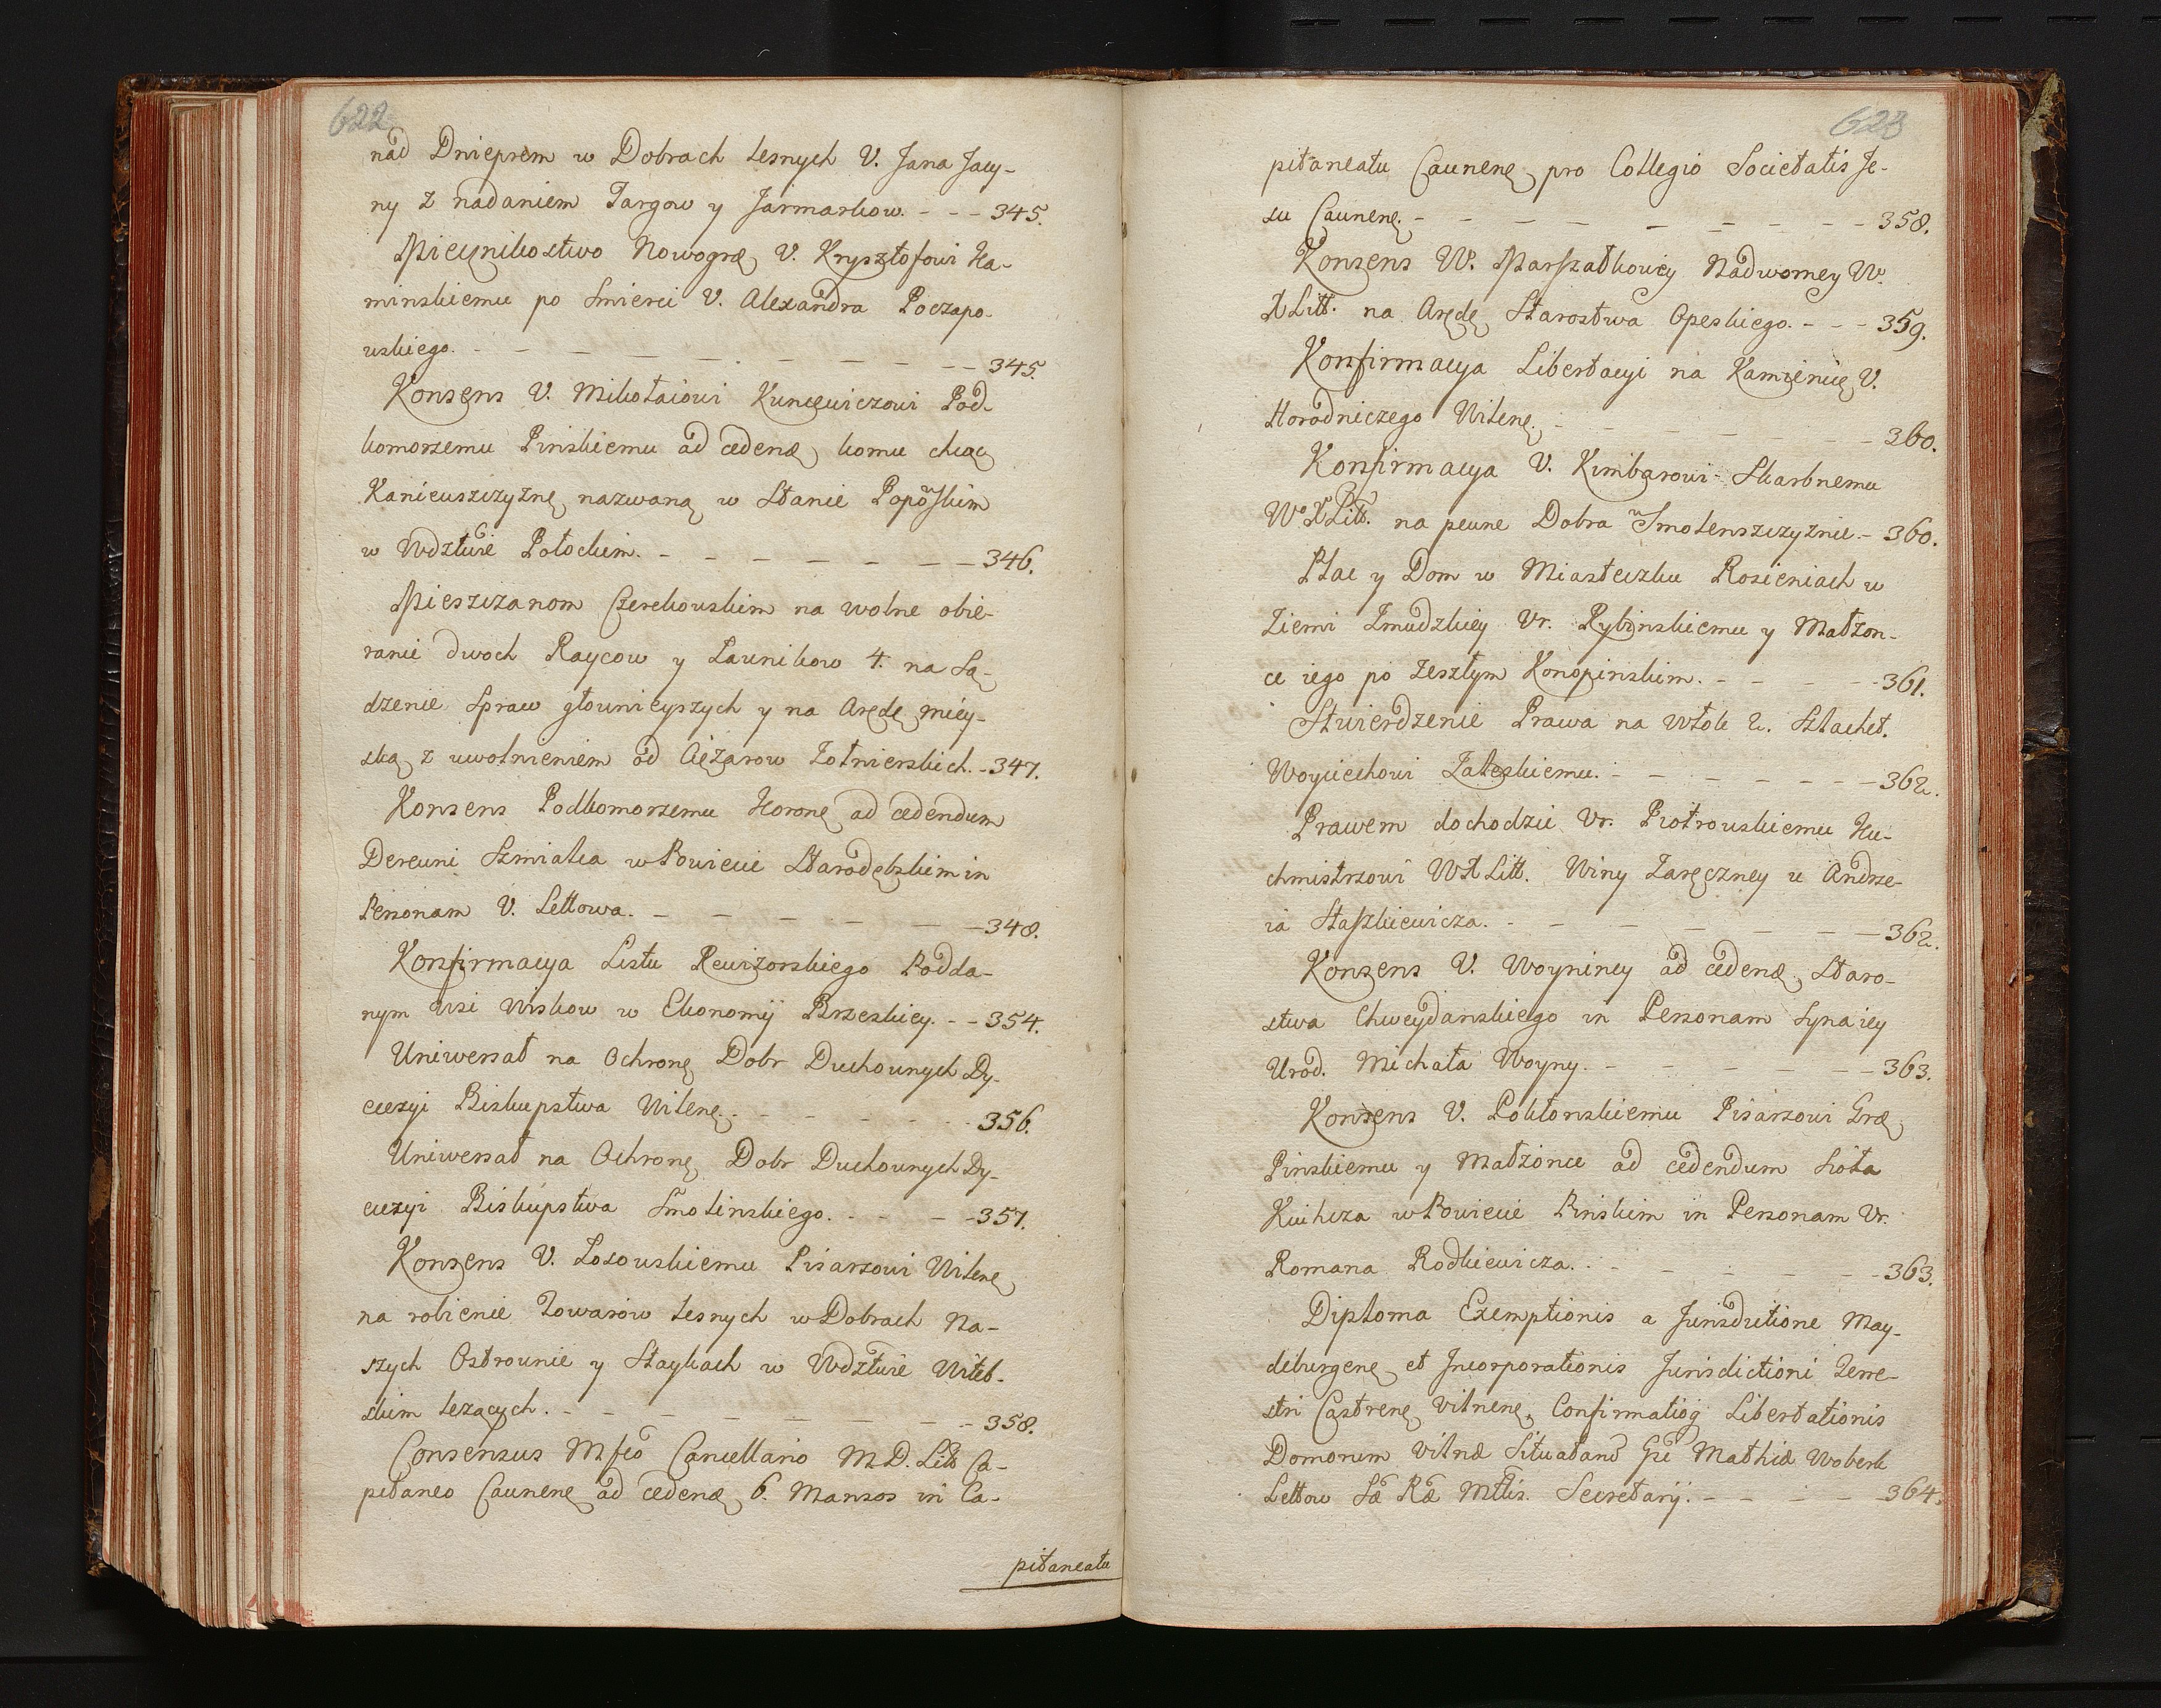 622
nad Dnieprem w Dobrach lesnych U. Jana Jacy-
ny z nadaniem Targow y Jarmarkow. - - - 345.
Miecznikostwo Nowogrœ U. Krysztofowi Ka-
minskiemu po Smierci U. Alexandra Poczapo-
wskiego. - - - - - - - - - 345.
Konsens U. Mikołaiowi Kuncewiczowi Pod-
komorzemu Pinskiemu ad cedenœ komu chcąc
Kaniewszczyznę nazwaną w Stanie Popowskim
w Wdztwie Połockim. - - - - - - - 346.
Mieszczanom Czerekowskim na wolne obie-
ranie dwoch Raycow y Ławnikow 4. na Są-
dzenie Spraw głownieyszych y na Arędę miey-
ską z uwolnieniem od Ciężarow Zołnierskich. - 347.
Konsens Podkomorzemu Horonę ad cedendum
Derewni Szmiaka w Powiecie Starodębskim in
Personam U. Lettowa. - - - - - - - 348.
Konfirmacya Listu Rewizorskiego Podda-
nym wsi Wiskow w Ekonomij Brzeskiey. - - 354.
Uniwersał na Ochronę Dobr Duchownych Dy-
ecezyi Biskupstwa Wilenę. - - - - - 356.
Uniwersał na Ochronę Dobr Duchownych Dy-
ecezyi Biskupstwa Smolinskiego. - - - - 357.
Konsens U. Łosowskiemu Pisarzowi Wilenę
na robienie Towarow lesnych w Dobrach Na-
szych Ostrownie y Staykach w Wdztwie Witeb-
skim lezących. - - - - - - - - 358.
Consensus Mfco Cancellario M. D. Litt Ca-
pitaneo Caunenę ad cedenœ 6. Mansos in Ca-
pitaneatu
623
pitaneatu Caunenę pro Collegio Societatis Je-
su Caunenę. - - - - - - - - 358.
Konsens W. Marszałkowey Nadworney W.
X Litt. na Arędę Starostwa Opeskiego. - - - 359.
Konfirmacya Libertacyi na Kamienicę U.
Horodniczego Wilenę. - - - - - - 360.
Konfirmacya U. Kimbarowi Skarbnemu
Wo X Litt. na pewne Dobra w Smolenszczyznie. - 360.
Plac y Dom w Miasteczku Rosieniach w
Ziemi Zmudzkiey Ur. Rybinskiemu y Małzon-
ce iego po zeszłym Konopinskim. - - - - 361.
Stwierdzenie Prawa na Włok 2. Szlachet.
Woyciechowi Zaleskiemu. - - - - - - 362.
Prawem dochodzic Ur. Piotrowskiemu Ku-
chmistrzowi WX Litt. Winy Zaręczney u Andrze-
ia Staszkiewicza. - - - - - - - 362.
Konsens U. Woyniney ad cedenœ Staro-
stwa Chweydanskiego in Personam Syna iey
Urod. Michała Woyny. - - - - - - 363.
Konsens U. Połtonskiemu Pisarzowi Grœ
Pinskiemu y Małzonce ad cedendum Sioła
Kuchcza w Powiecie Pinskim in Personam Ur.
Romana Rodkiewicza. - - - - - - 363.
Diploma Exemptionis a Jurisdictione May-
deburgenę et Incorporationis Jurisdictioni Terre-
stri Castrenę Vilnenę, Confirmatioq Libertationis
Domorum Vilnœ Situatarũ Gri Mathiœ Woberk
Lettow Sœ Rœ Mttis. Secretarij. - - - - 364.